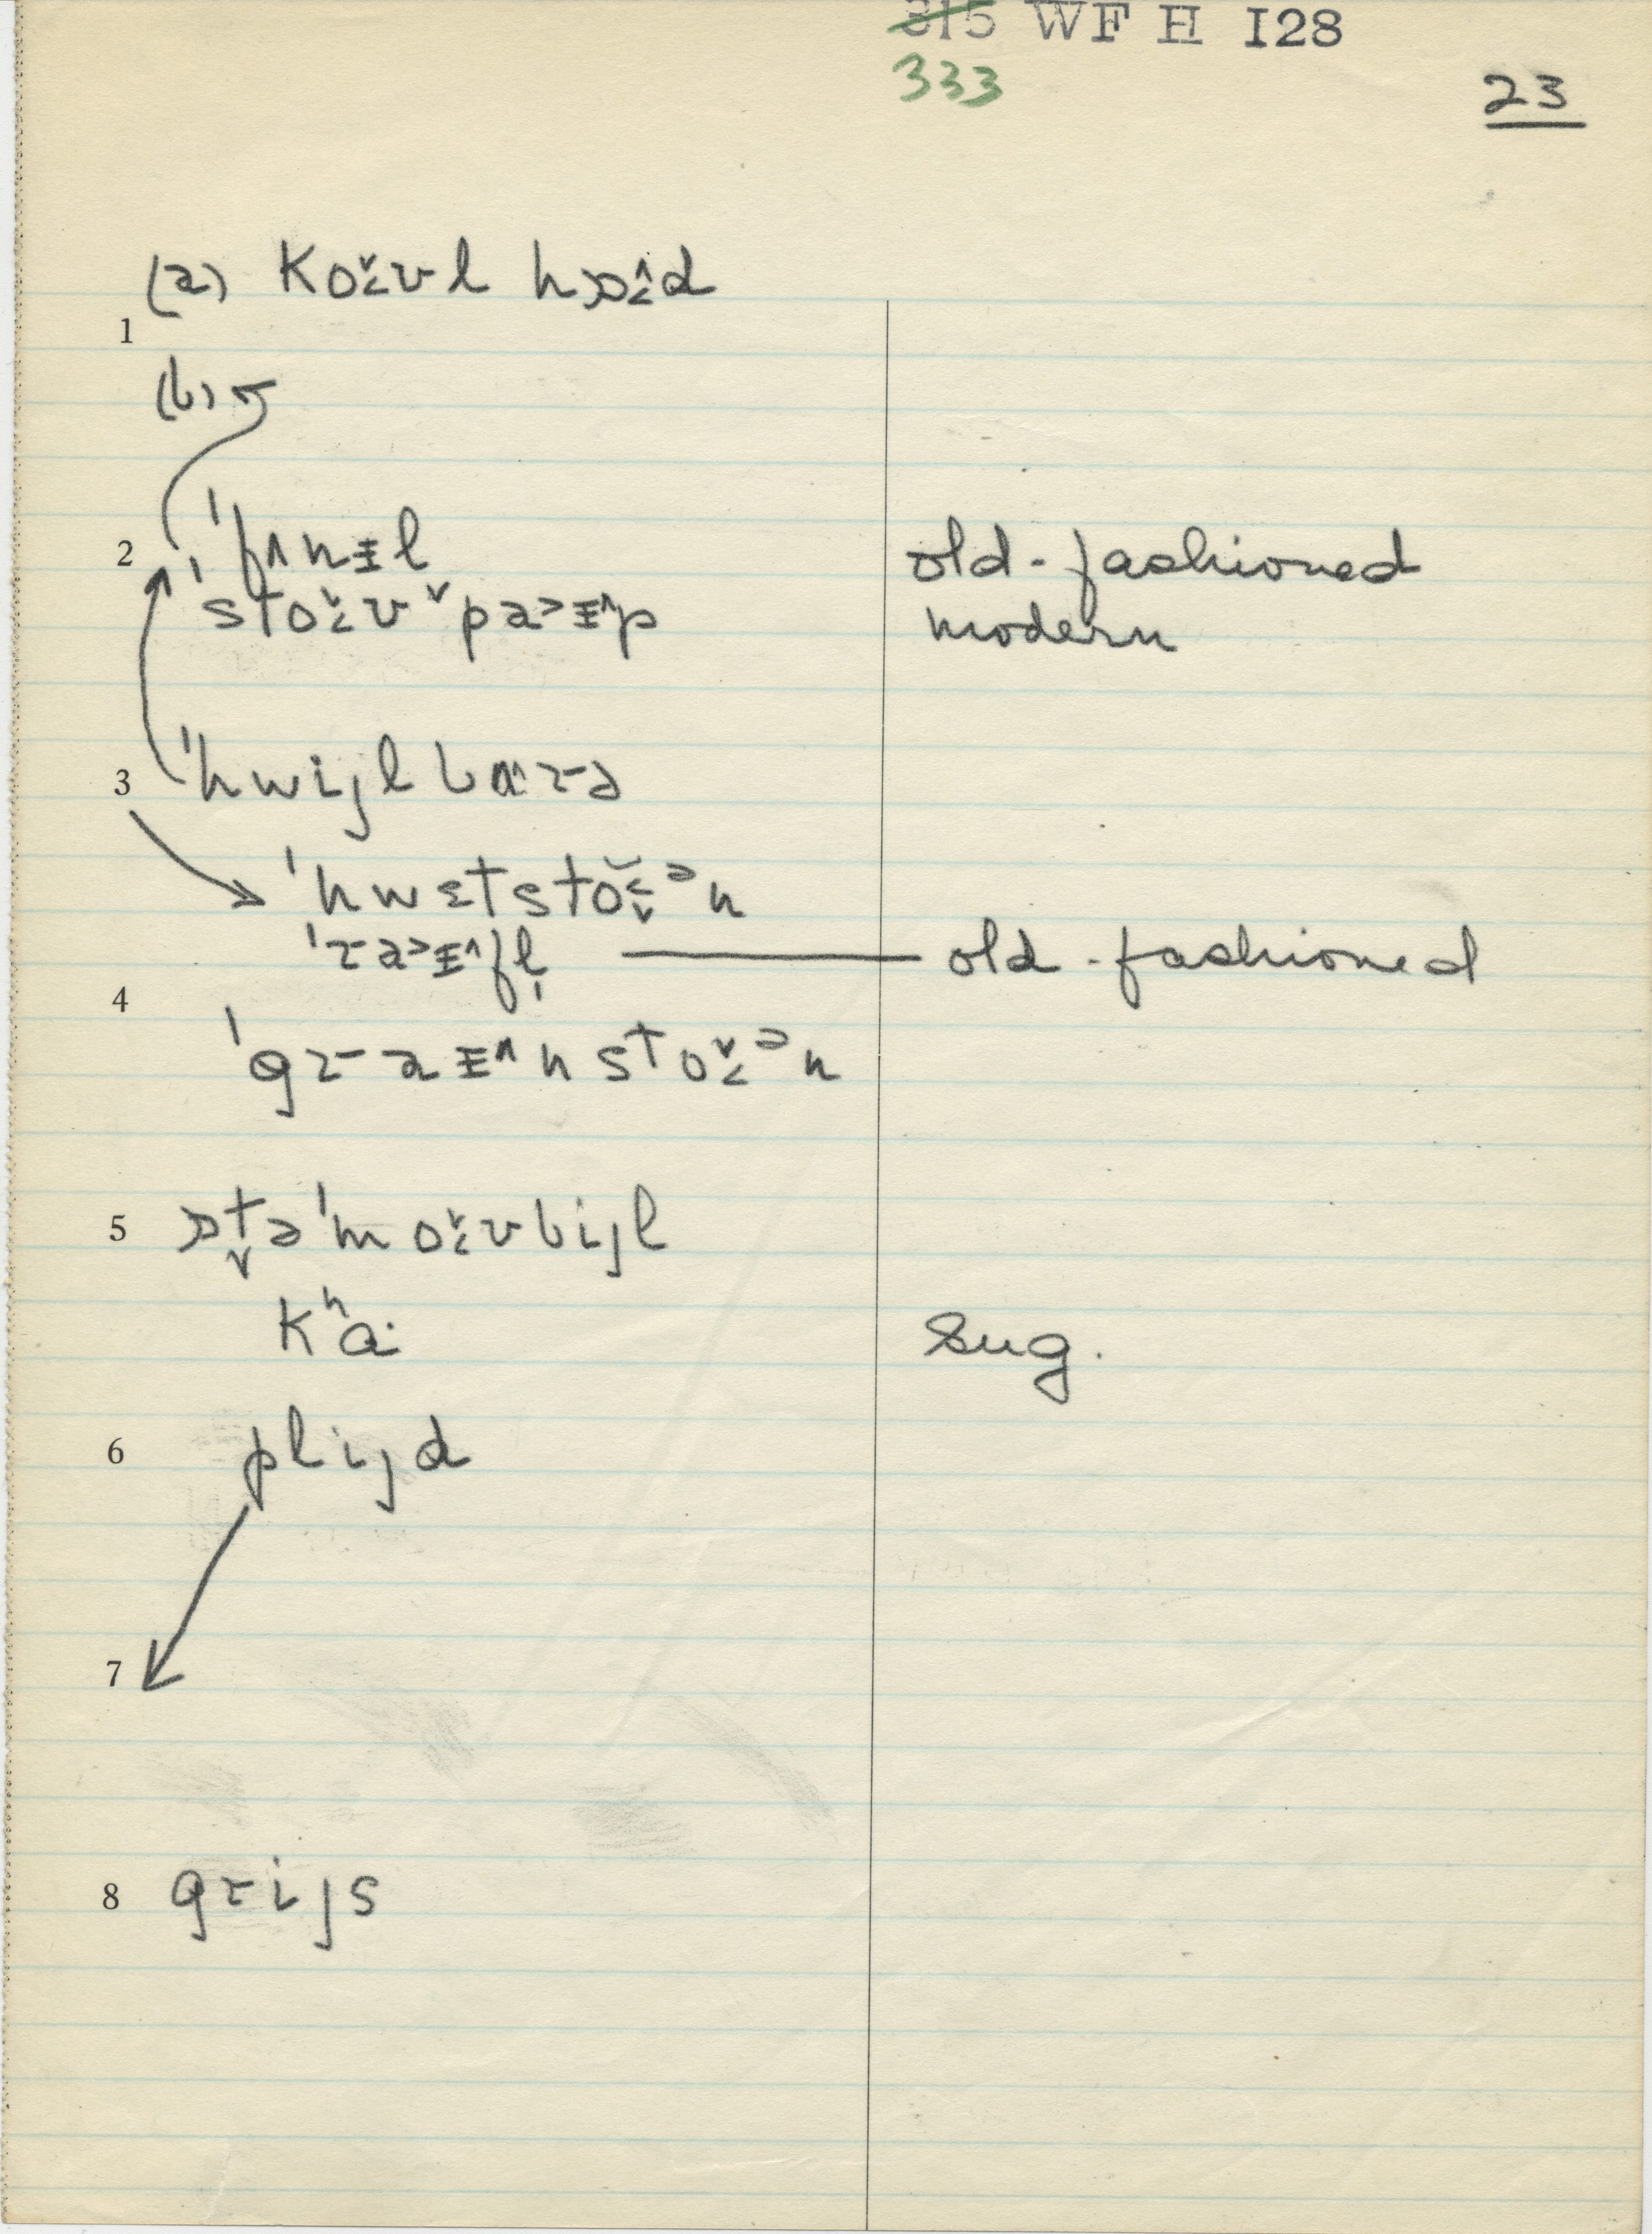 315 WF H I28
333
23
(a) koˇ᷾ʊl hɒ᷾ˆd
1
(b)
2 ˈfʌnɨl old-fashioned
ˈstoʊv ˇpa˃ɨ^p modern
3 ˈhwijlbærə
ˈhwɛtstoən
ˈra˃ɨ^fl̩ old-fashioned
4
ˈgraɨ^nstoən
5 ɒt̬əˈmoʊbijl
kʰa: sug.
6 plijd
7
8 grijs